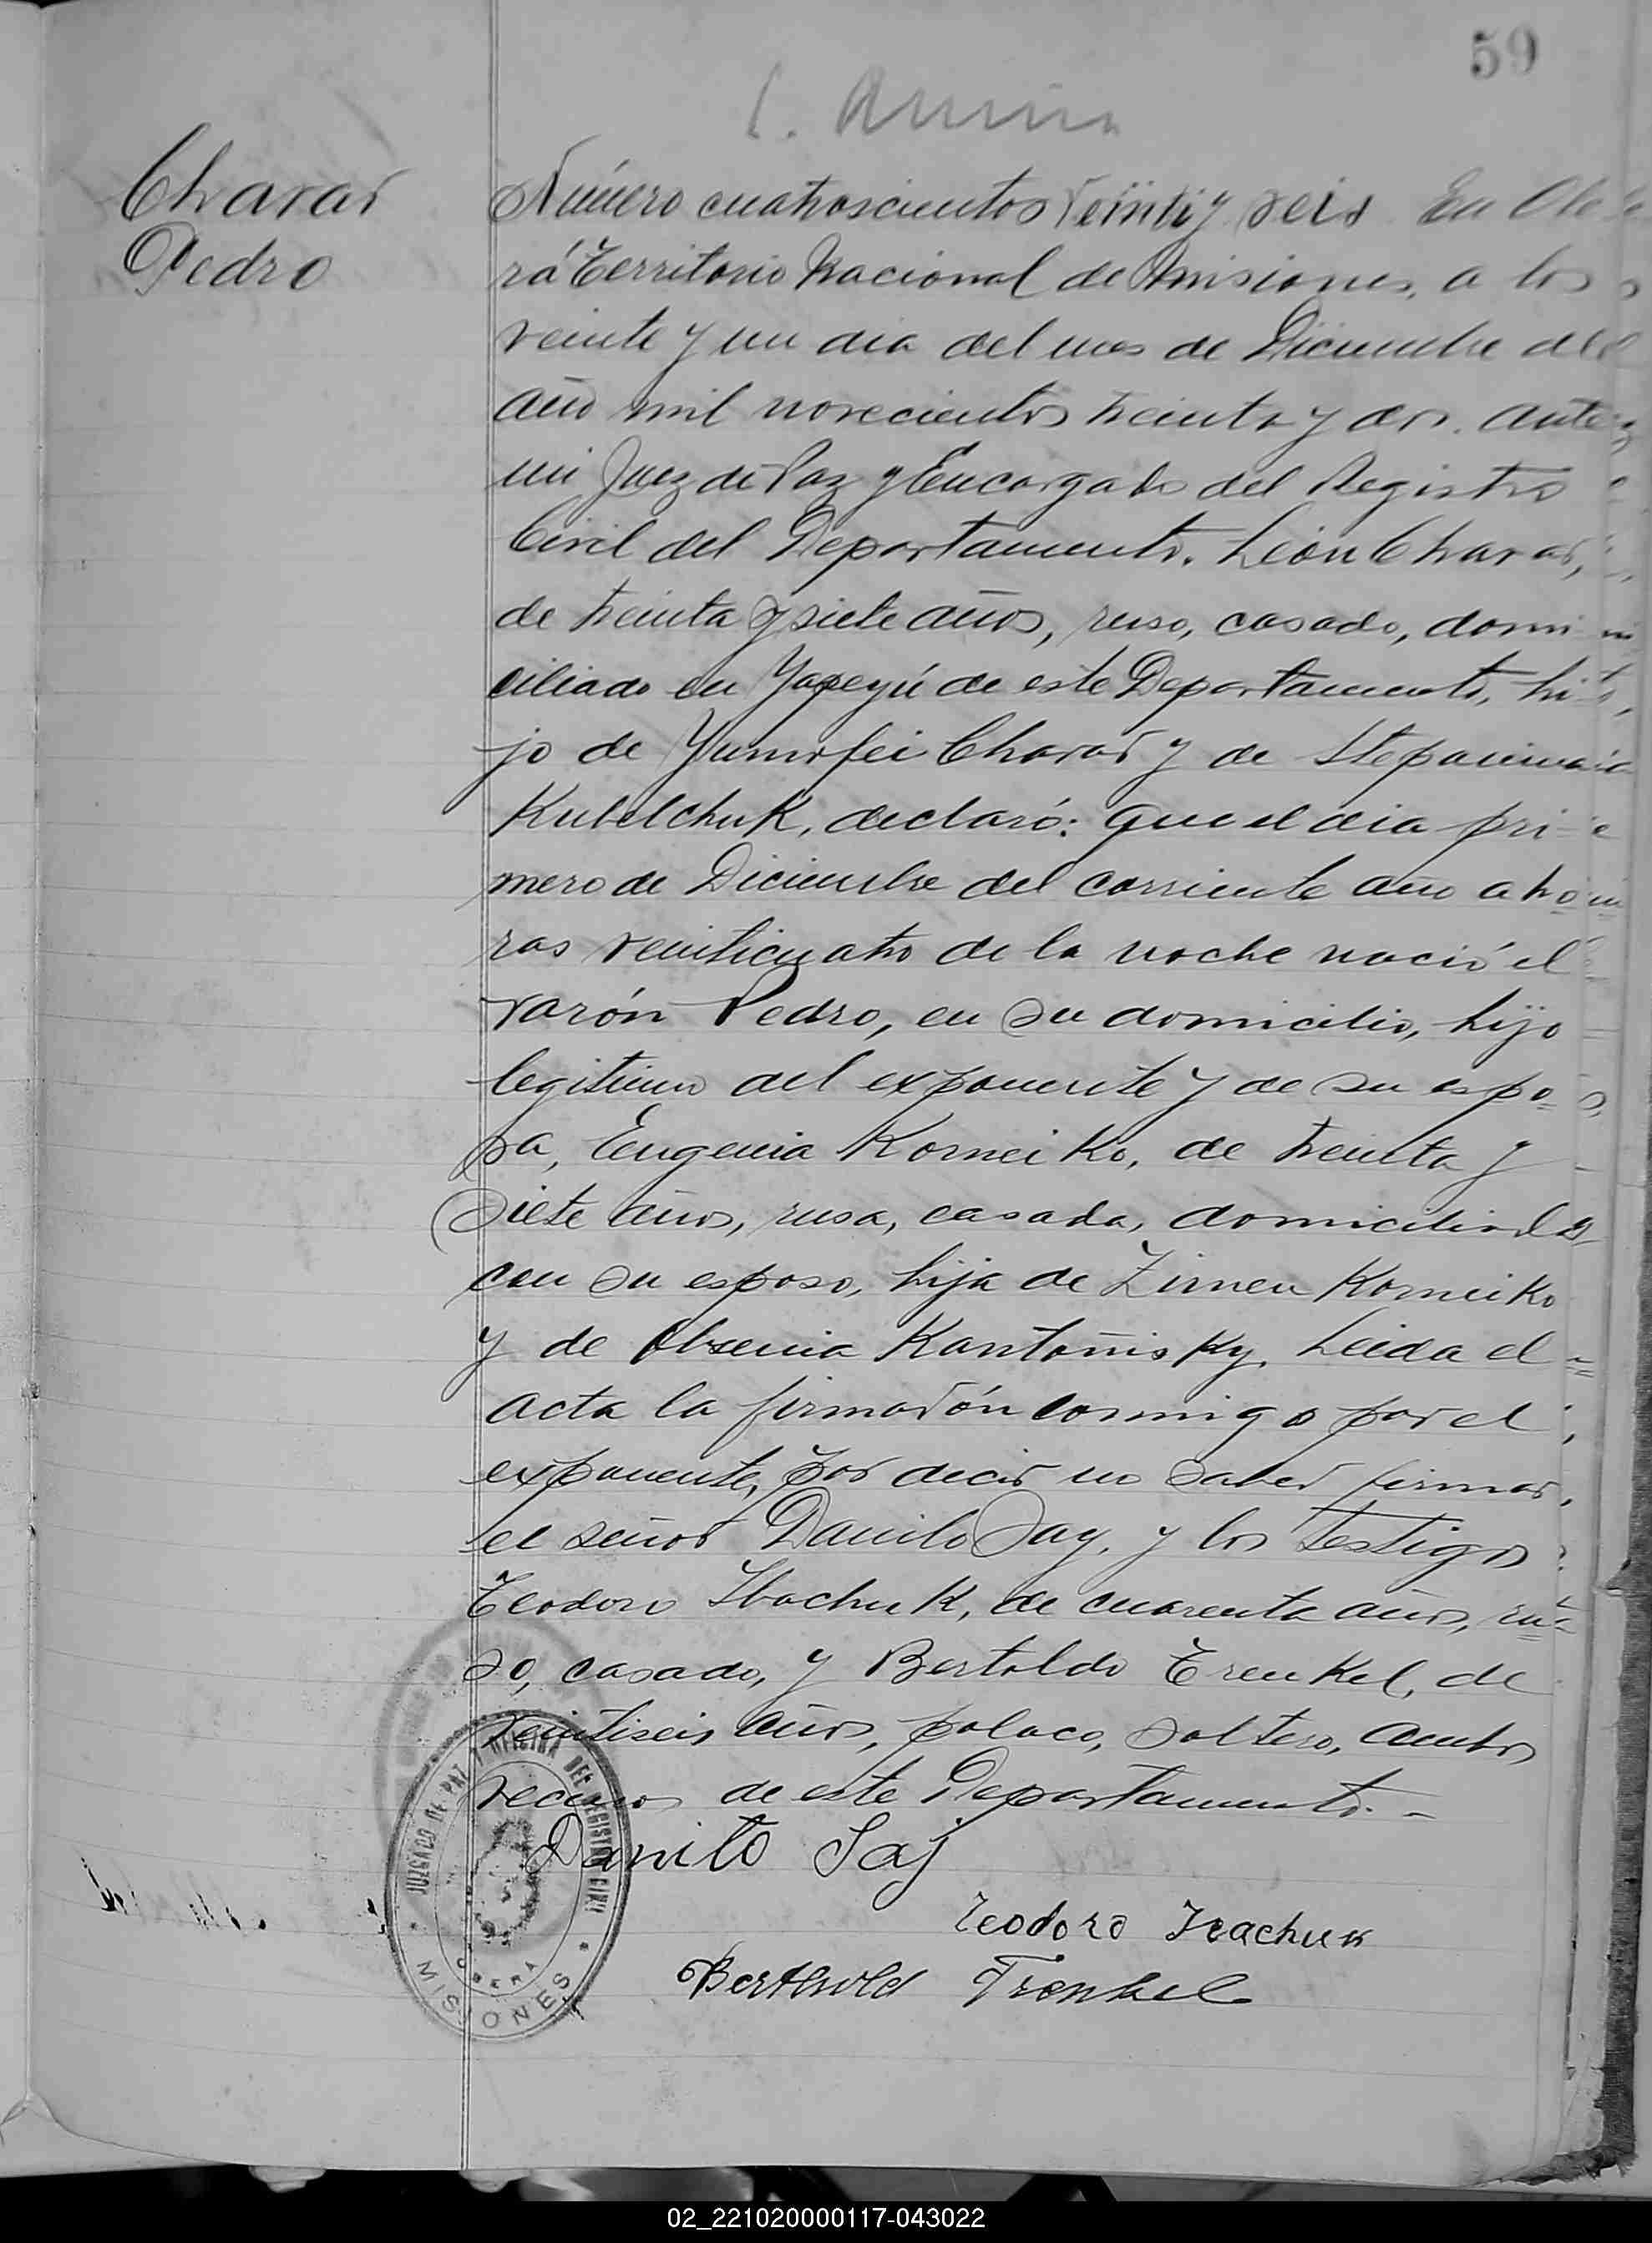 59
Charar
Pedro
Número cuatroscientos veinti y seis En Obe
rá Territorio Nacional de Misiones, a los
veinte y un dia del mes de Diciembre del
año mil novecientos treinta y dos. Ante
mi Juez de Paz y Encargado del Registro
Civil del Departamento. León Charar,
de treinta y siete años, ruso, casado, domi
ciliado en Yapeyú de este Departamento, hi
jo de Yumofei Charar y de
Kubelchuk, declaró: que el dia pri
mero de Diciembre del corriente año a ho
ras veinticuatro de la noche nació el
varón Pedro, en su domicilio, hijo
legitimo del exponente y de su espo=
sa, Eugenia Korneiko, de treinta y
siete años, rusa, casada, domiciliada
con su esposo, hija de Zimen Korneiko
y de Absenia Kantoñisky. Leida el
acta la firmarón conmigo por el
exponente, por decir no saber firmar,
el señor Danilo Say, y los testigos
Teodoro Ibachuk, de cuarenta años, ru=
so, casado, y Bertoldo Trenkel, de
veintiseis años, polaco, soltero, ambos
vecinos de este Departamento.-
Danilo Saj
Teodoro Ivachuk
Berthold Trenkel
JUZGADO DE PAZ Y OFICINA DEL REGISTRO CIVIL
OBERA
MISIONES
02_221020000117-043022